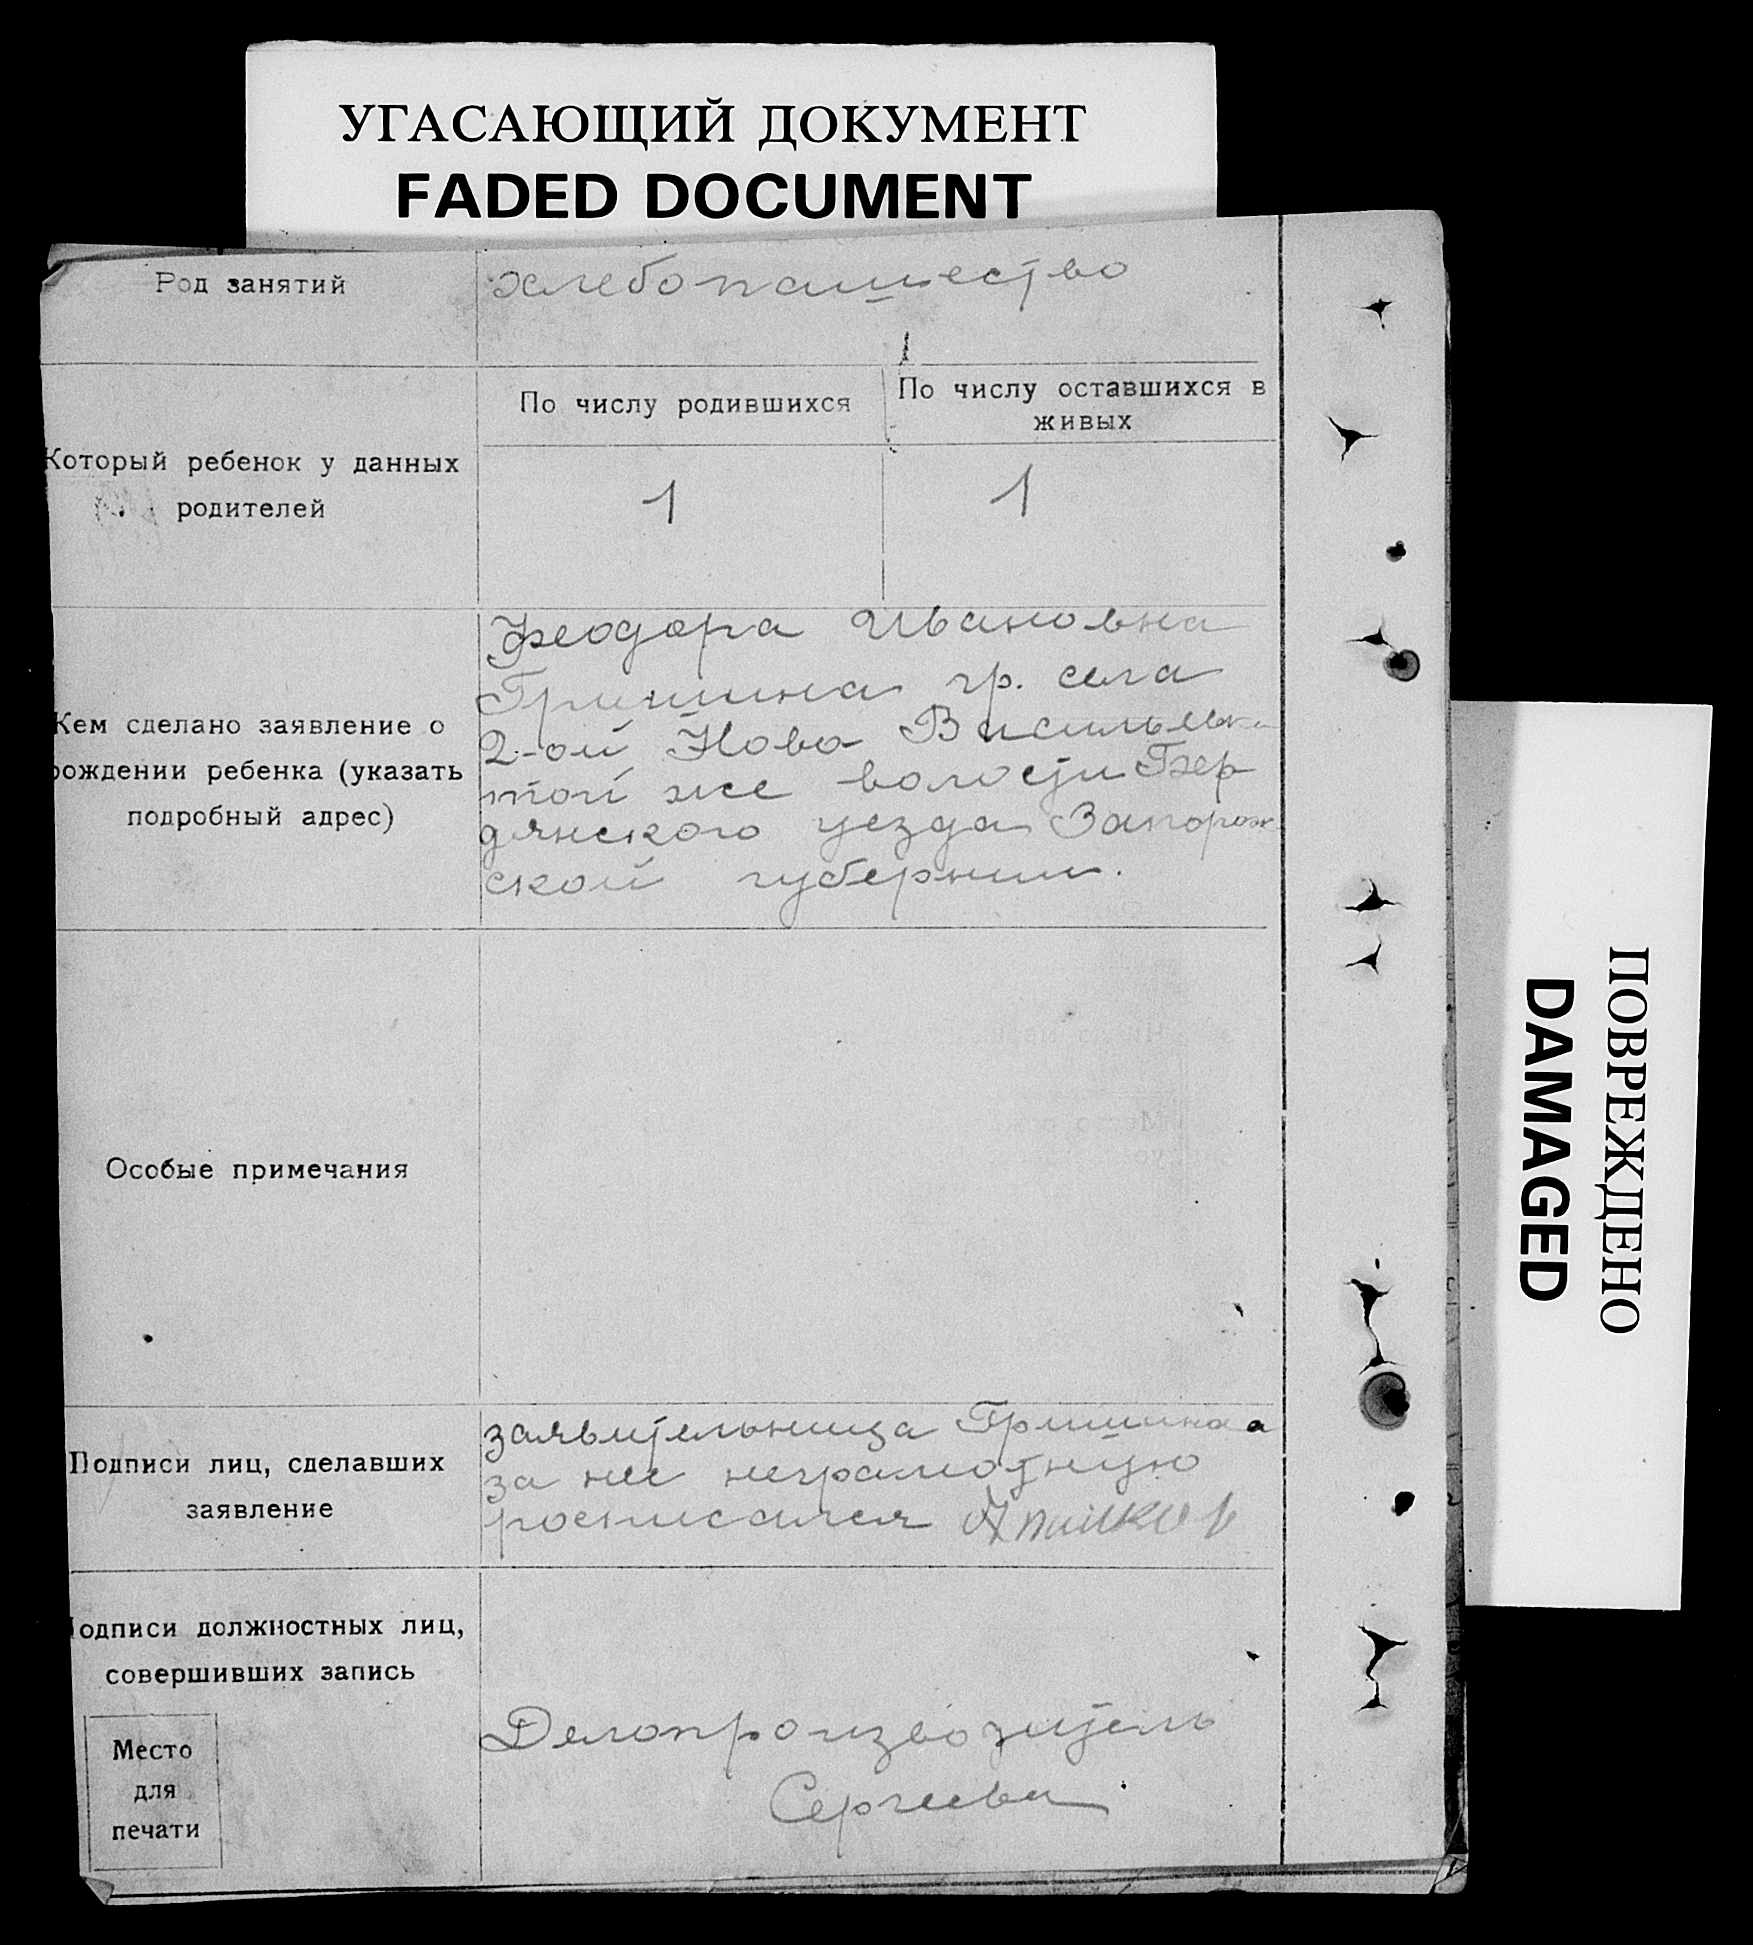 УГАСАЮЩИЙ ДОКУМЕНТ
FADED DOCUMENT
Род занятий
хлебопашество
1
Который ребенок у данных
родителей
По числу родившихся
По числу оставшихся в
живых
1
1
Кем сделано заявление о
рождении ребенка (указать
подробный адрес)
Феодора Ивановна
Гришина гр. села
2-ой Ново
той же волости Бер
дянского уезда Запорож
ской губернии.
Особые примечания
Подписи лиц, сделавших
заявление
заявительница Гришина
за нее неграмотную
росписался
Подписи должностных лиц,
совершивших запись
Место
для
печати
Делопроизводитель
Сергеева
ПОВРЕЖДЕНО
DAMAGED